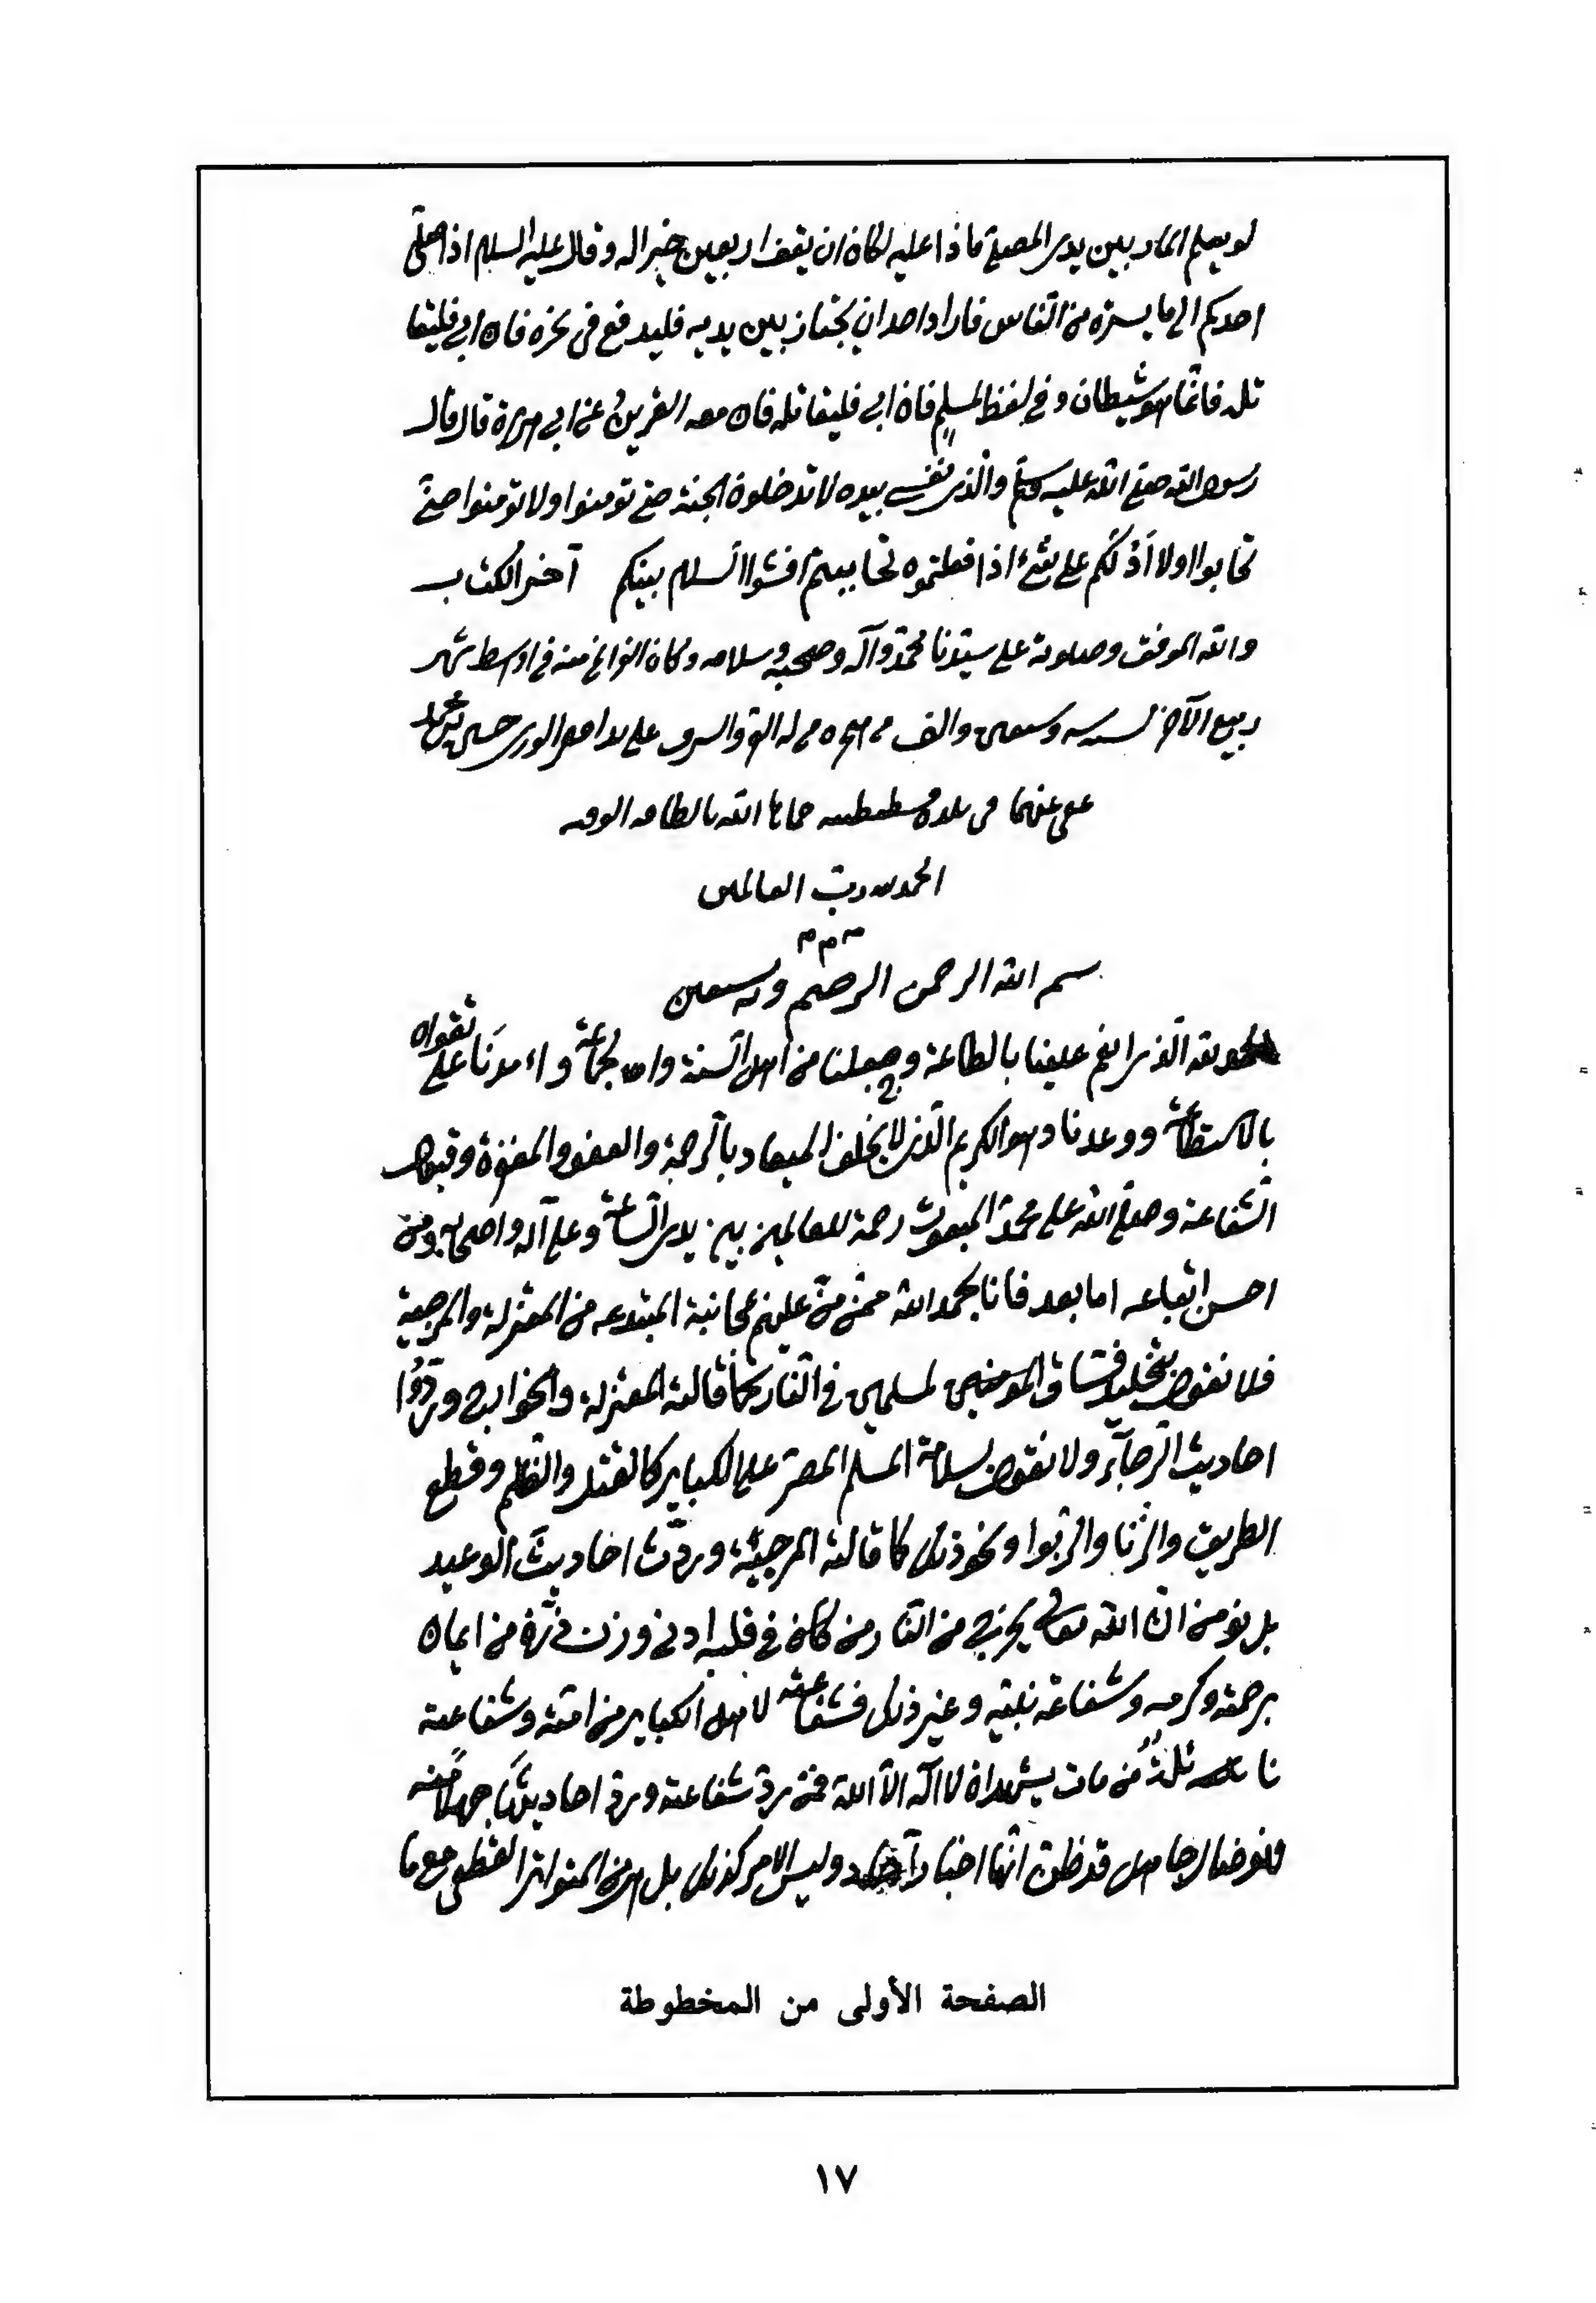 لو يعلم المار بين يدى المصلى ماذا عليه لكان ان يقف اربعين خير اله وقال عليه السلام اذا صلى
احدكم الى ما يستره من الناس فاراد احد ان يجتاز بين يديه فليدفع فى نحره فان ابى فليقا
تله فانما هو شيطان وفي لفظ لمسلم فان ابى فليقاتله فان معه القرين عن ابى هريرة قال قال
رسول الله صلى الله عليه وسلم والذى نفسى بيده لا تدخلون الجنة حتى تؤمنوا ولا تؤمنوا حتى
تحابوا اولا ادلكم على شىء اذا فعلتموه تحاببتم افشوا السلام بينكم آخر الكتاب
والله الموفق وصلوته على سيدنا محمد وآله وصحبه وسلامه وكان الفراغ منه فى اوسط شهر
ربيع الآخر وسبعين والف من هجرة من له العز والشرف على يد الورى حسن بن محمد
عفى عنهما فى بلدة قسطنطينية حماها الله بالطافه
الحمد لله رب العالمين
بسم الله الرحمن الرحيم وبه نستعين
الحمد لله الذى انعم علينا بالطاعة وجعلنا من اهل السنة والجماعة وأمدنا على تقواه
بالاستطاعة ووعدنا وهو الكريم الذى لا يخلف الميعاد بالرحمة والعفو والمغفرة وقبول
الشفاعة وصلى الله على محمد المبعوث رحمة للعالمين بين يدى الساعة وعلى آله واصحابه ومن
احسن اتباعه اما بعد فانا بحمد الله ممن من عليهم بمجانبة المبتدعه من المعتزلة والمرجية
فلا نقول بتخليد فساق المؤمنين لمسلمين فى النار كما قالته المعتزلة والخوارج وردوا
احاديث الرجآء ولا نقول بسلامة المسلم المصر على الكباير كالقتل والظلم وقطع
الطريق والزنا والربوا ونحو ذلك كما قالته المرجيئة وردت احاديث الوعيد
بل نؤمن ان الله تعالى يخرج من النار من كان فى قلبه ادنى وزن ذرة من ايمان
برحمته وكرمه وشفاعة نبيه وغير ذلك فشفاعته لاهل الكباير من امته وشفاعته
نايلة من مات يشهد ان لا اله الا الله فمن رد شفاعته ورد احاديثها جهلا منه
فهو ضال جاهل قد ظن انها اخبار آحاد وليس الامر كذلك بل هى من المتواتر القطعى مع ما
الصفحة الأولى من المخطوطة
١٧